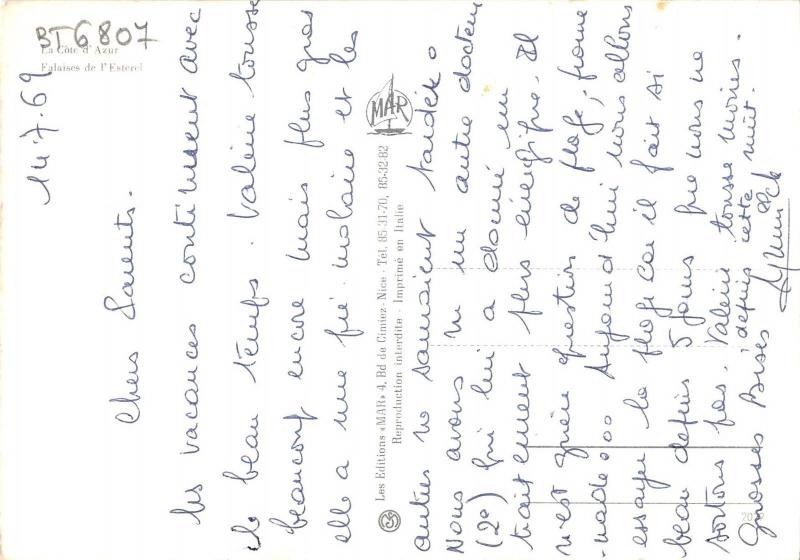 BT6807
La Côte d'Azur
Falaises de l'Esterel
14.7.69
Chers Parents.
Les vacances continuent avec
le beau temps. Valérie tousse
beaucoup encore mais plus gras
elle a une pré-molaire et les
autres ne sauraient tarder.
Nous avons vu un autre docteur
(2e) qui lui a donné un
traitement plus énergique. Il
n'est guère question de plage, prome
-nade... Aujourd'hui nous allons
essayer la plage car il fait si
beau depuis 5 jours que nous ne
sortons pas. Valérie tousse moins.
depuis cette nuit.
Grosses Bises
Annick
MAR
Les Editions «MAR» 4, Bd de Cimiez - Nice - Tél. 85 31-70, 85-32-82
Reproduction interdite - Imprimé en Italie